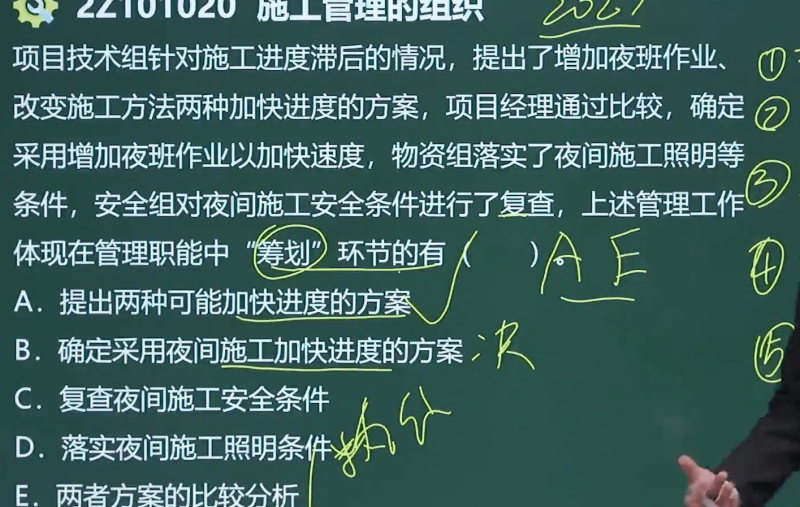 2Z101020 施工管理的组织
2021
项目技术组针对施工进度滞后的情况，提出了增加夜班作业、 ①
改变施工方法两种加快进度的方案，项目经理通过比较，确定 ②
采用增加夜班作业以加快速度，物资组落实了夜间施工照明等
条件，安全组对夜间施工安全条件进行了复查，上述管理工作 ③
体现在管理职能中“筹划”环节的有（ ）。 A E ④
A．提出两种可能加快进度的方案
B．确定采用夜间施工加快进度的方案 决 ⑤
C．复查夜间施工安全条件
D．落实夜间施工照明条件 执行
E．两者方案的比较分析